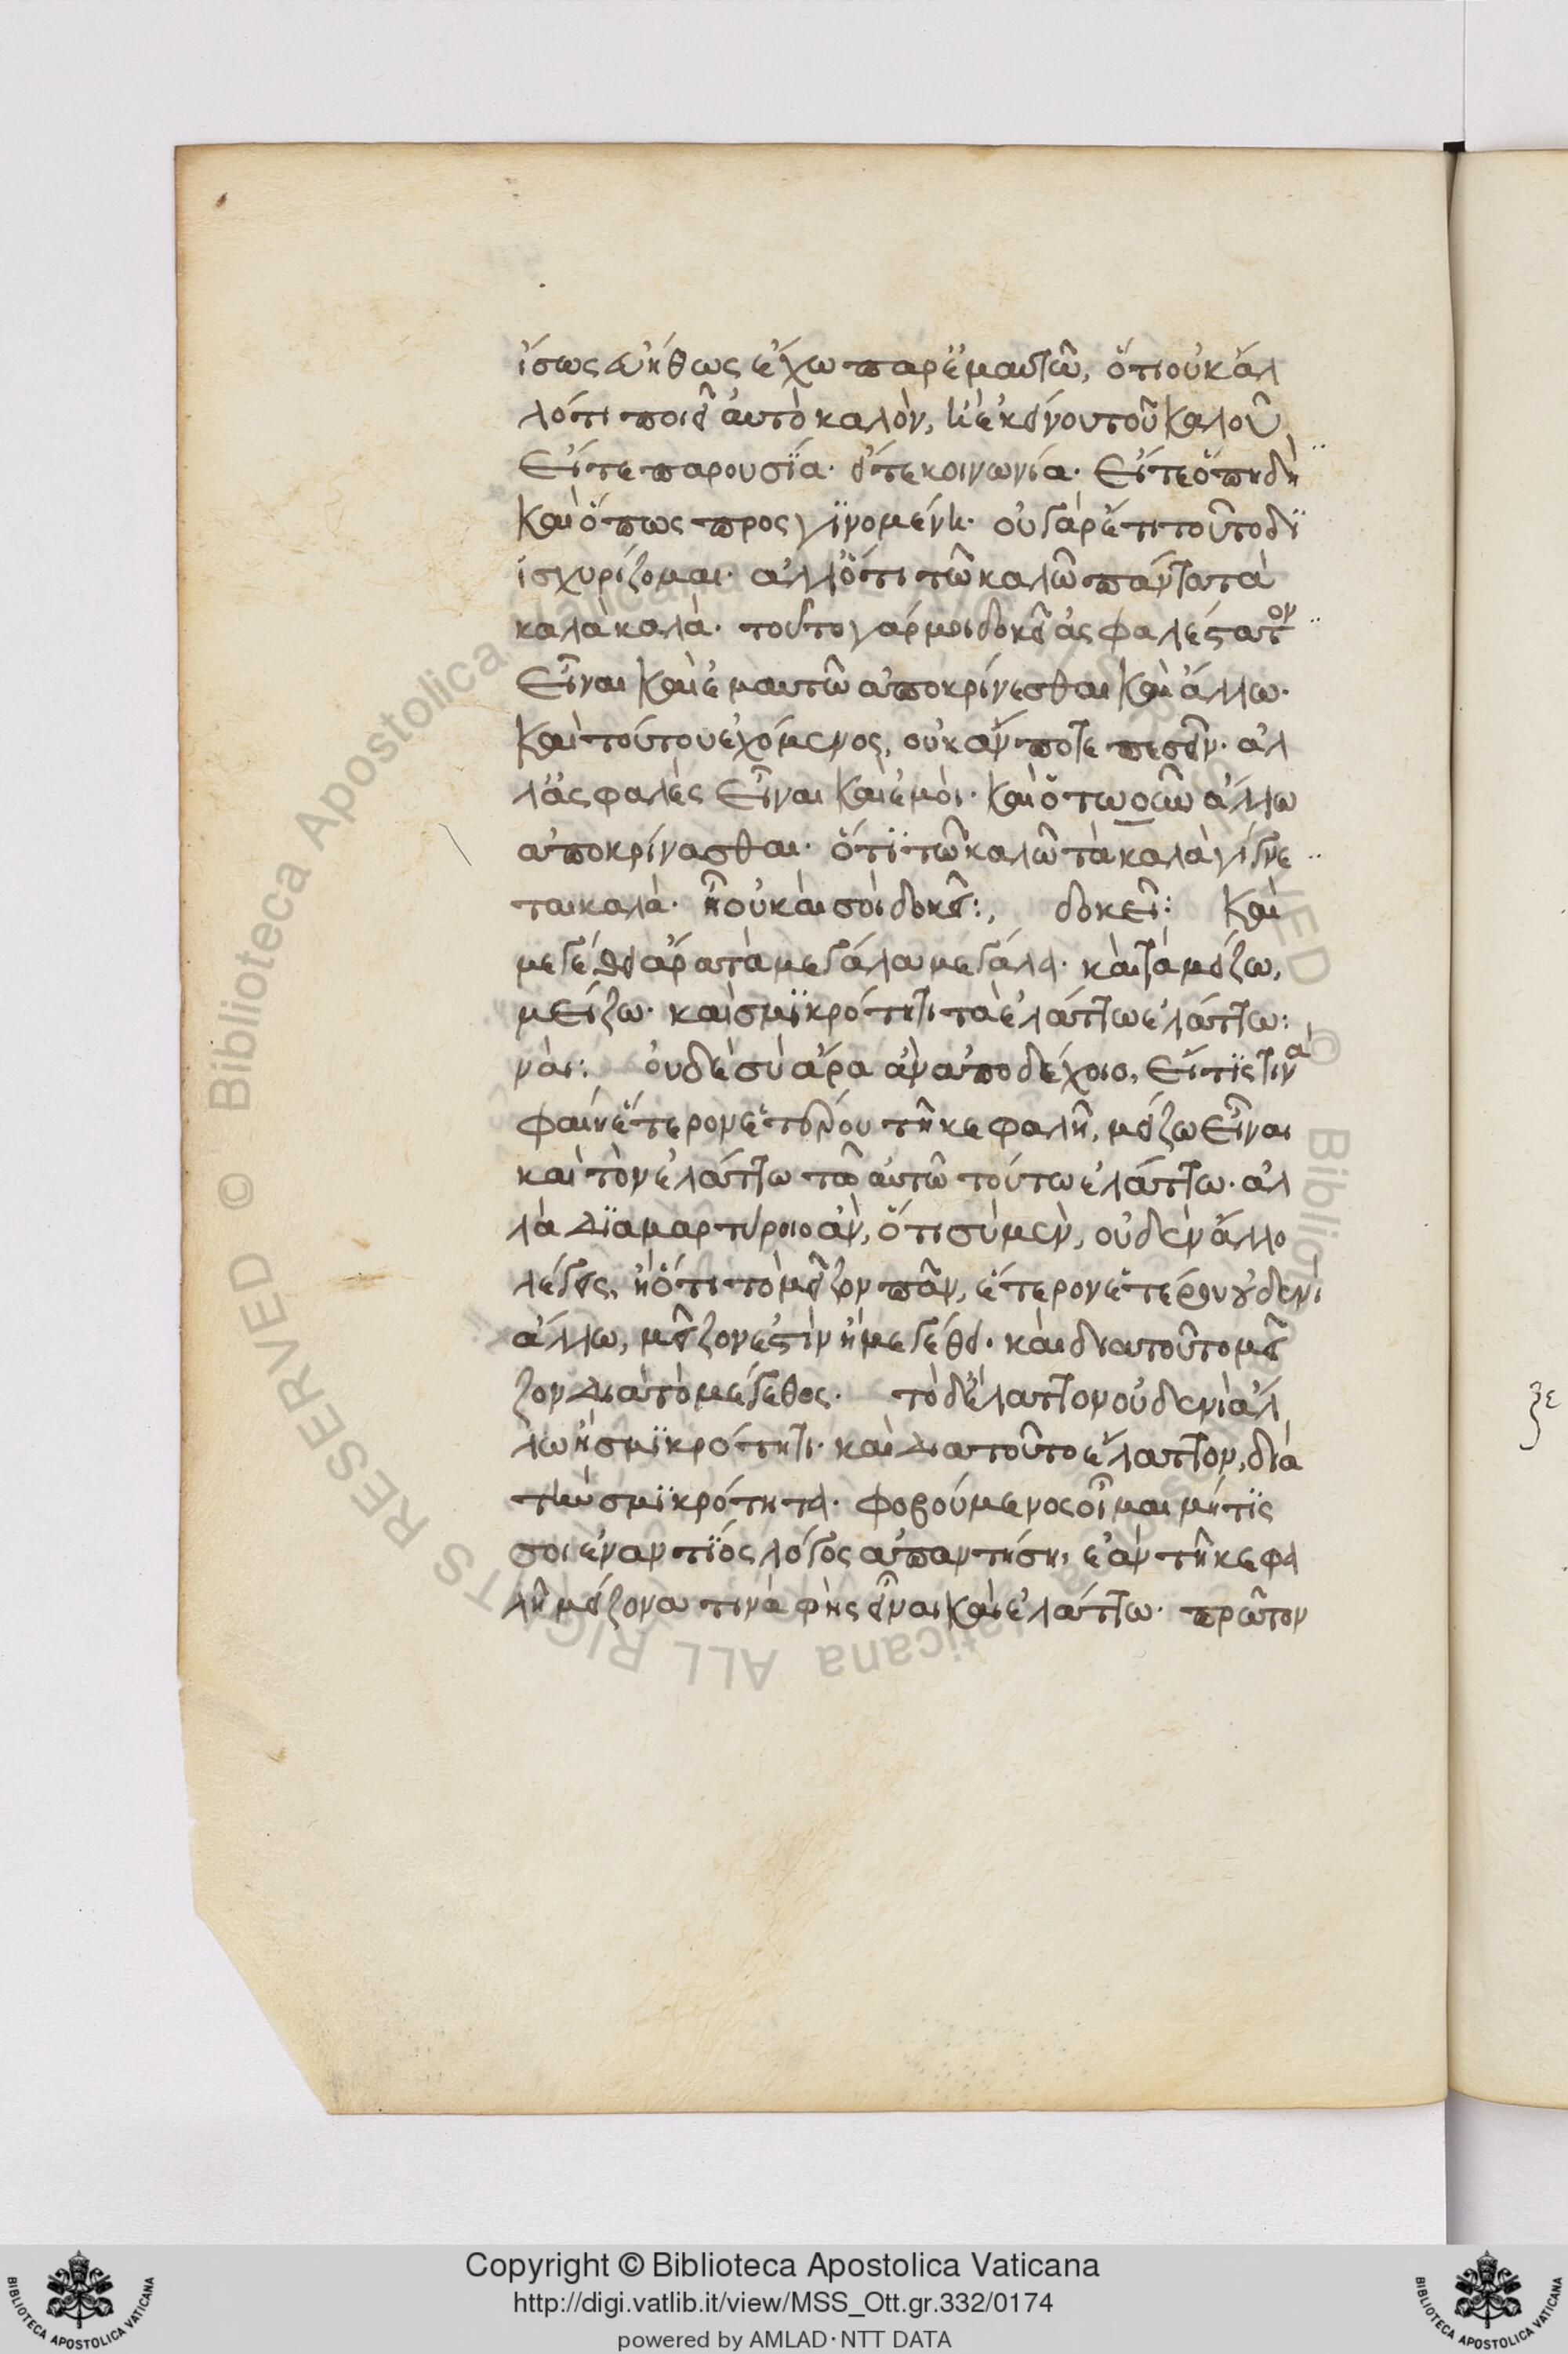 ἴσως εὐήθως ἔχω παρ ἐμαυτῶ, ὅτι οὐκ ἄλ
λό τι ποιεῖ ἀυτὸ καλὸν, ἢ ἐκείνου τοῦ καλοῦ
εἴτε παρουσΐα· εἴτε κοινωνία· εἴτε ὅπη δὴ
καὶ ὅπως προσγϊνομένη· οὐ γὰρ ἔτι τοῦτο δϊ
ϊσχυρίζομαι· αλλ ὅτι τῶ καλῶ πάντα τὰ
καλὰ καλά· τοῦτο γάρ μοι δοκεῖ ἀσφαλέστατον
εἶναι καὶ ἐμαυτῶ αποκρίνεσθαι καὶ ἄλλω·
καὶ τούτου ἐχόμενος, ουκ ἄν ποτε πεσεῖν· ἀλ
λ ἀσφαλὲς εἶναι καὶ ἐμοὶ· καὶ ὅτω οῦν ἄλλω
αποκρίνασθαι· ὅτϊ τῶ καλῶ τὰ καλὰ γίγνε
ται καλὰ· ἢ οὐ καὶ σοὶ δοκεῖ:, δοκεῖ: Καὶ
μεγέθει ἄρα τὰ μεγάλα μεγάλα· καὶ τὰ μείζω,
μείζω· καὶ σμϊκρότητι τὰ ἐλάττω ἐλάττω:
ναι: ὀυδὲ σὺ ἄρα ἂν αποδέχοιο, εἴ τϊς τινὰ
φαίη ἕτερον ἑτέρου τῆ κεφαλῆ, μείζω εἶναι
καὶ τὸν ἐλάττω τῶ ἀυτῶ τούτω ἐλάττω· ἀλ
λὰ δϊαμαρτύροιο ἂν, ὅτι σὺ μὲν, οὐδὲν ἄλλο
λέγεις, ἢ ὅτι τὸ μεῖζον πᾶν, ἕτερον ἑτέρου οὐδενὶ
ἄλλω, μεῖζον ἐστὶν ἢ μεγέθει· καὶ διατοῦτο μεῖ
ζον διὰ τὸ μέγεθος· τὸ δ ἔλαττον οὐδενὶ ἄλ
λω ἢ σμϊκρότητι· καὶ διατοῦτο ἔλαττον, διὰ
τὴν σμϊκρότητα· φοβούμενος οἶμαι μή τϊς
σοι ἐναντϊος λόγος απαντήση, ἐὰν τῆ κεφα
λῆ μείζονα τινὰ φὴς εἶναι καὶ ἐλάττω· πρῶτον
ξε
Copyright © Biblioteca Apostolica Vaticana
http://digi.vatlib.it/view/MSS_Ott.gr.332/0174
powered by AMLAD·NTT DATA